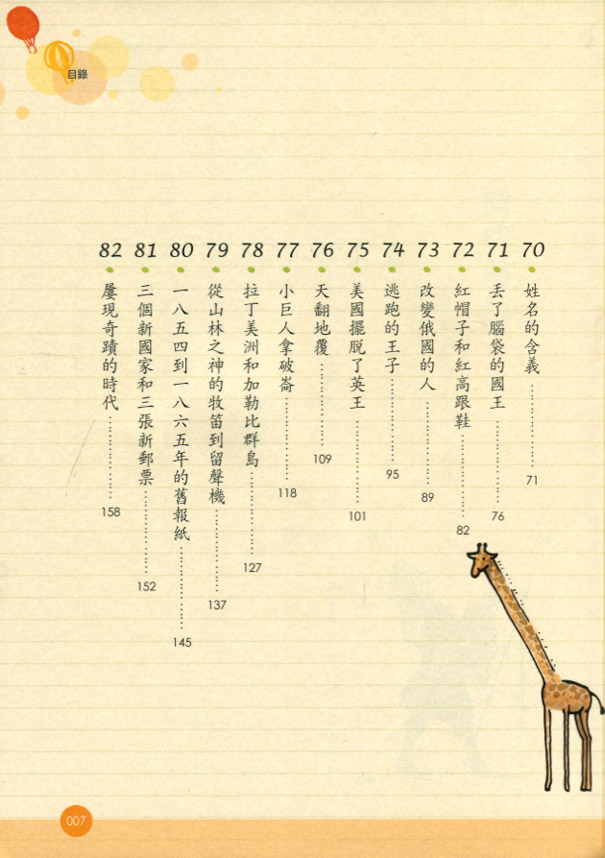 目錄
70 姓名的含義 71
71 丟了腦袋的國王 76
72 紅帽子和紅高跟鞋 82
73 改變俄國的人 89
74 逃跑的王子 95
75 美國擺脫了英王 101
76 天翻地覆 109
77 小巨人拿破崙 118
78 拉丁美洲和加勒比群島 127
79 從山林之神的牧笛到留聲機 137
80 一八五四到一八六五年的舊報紙 145
81 三個新國家和三張新郵票 152
82 屢現奇蹟的時代 158
007